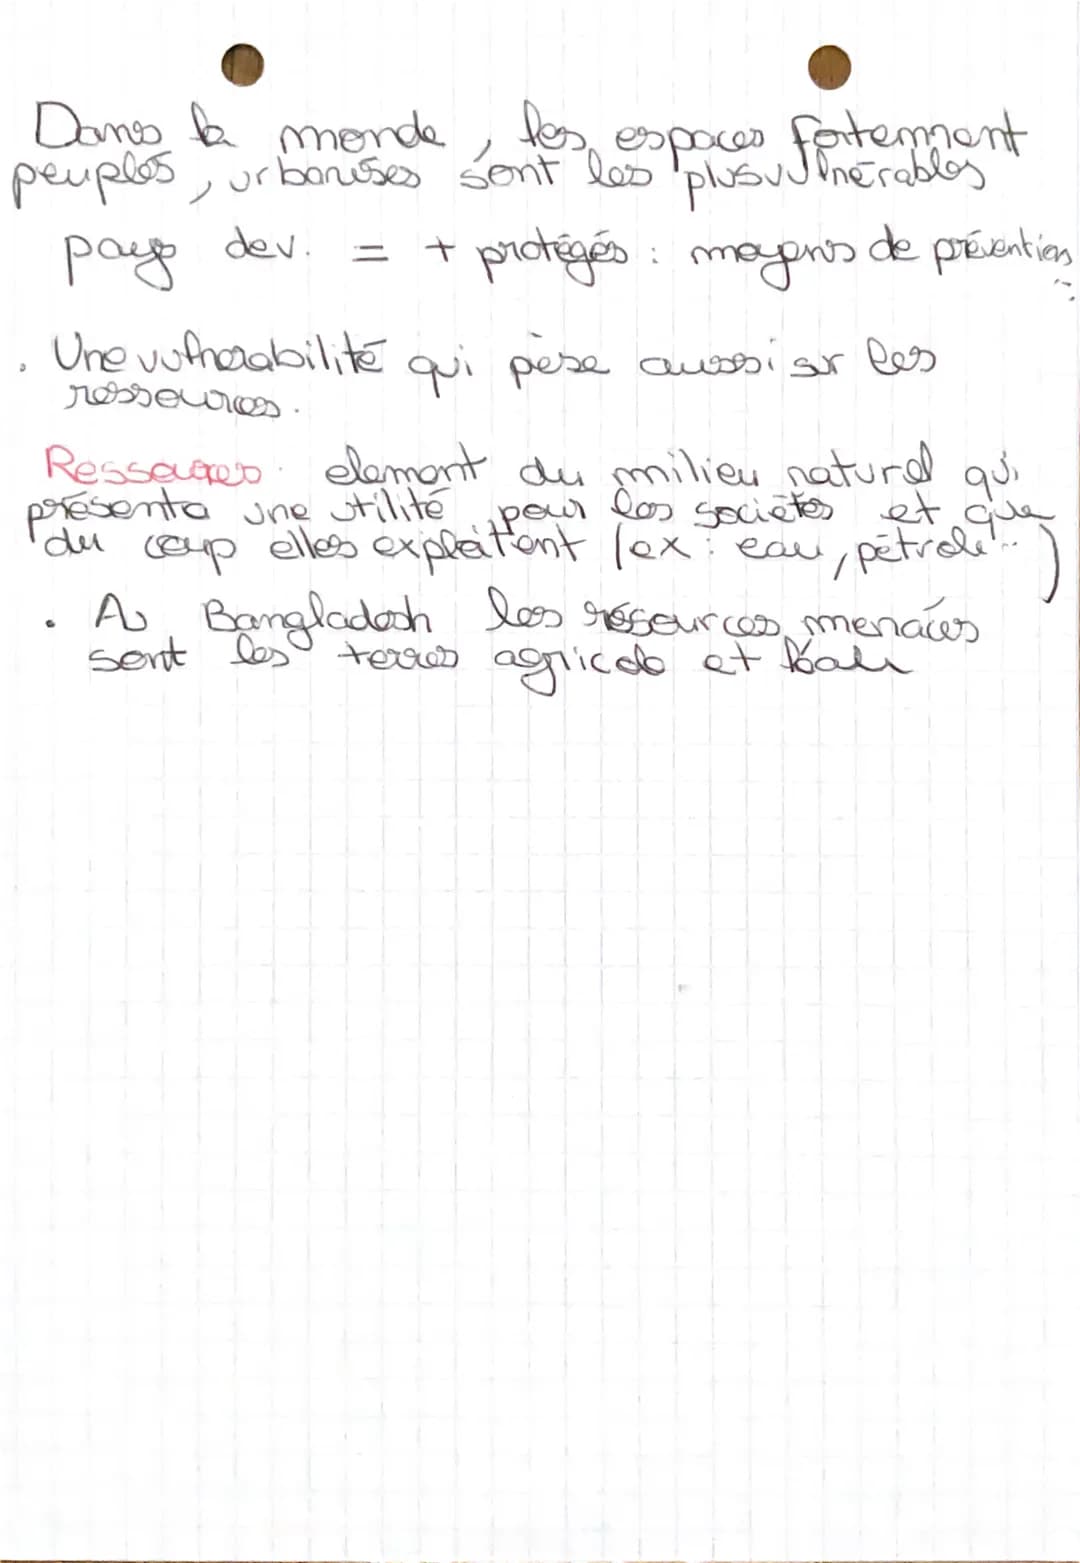 Dans le monde, les espaces fortement
peuplés, urbanisés sont les plus vulnérables
pays dev. = + protégés : moyens de prévention...
. Une vulnérabilité qui pèse aussi sur les
ressources.
Ressources : element du milieu naturel qui
présente une utilité pour les sociétés et que
du coup elles exploitent (ex : eau, pétrole...)
. Au Bangladesh les resources menacés
sont les terres agricole et l'eau